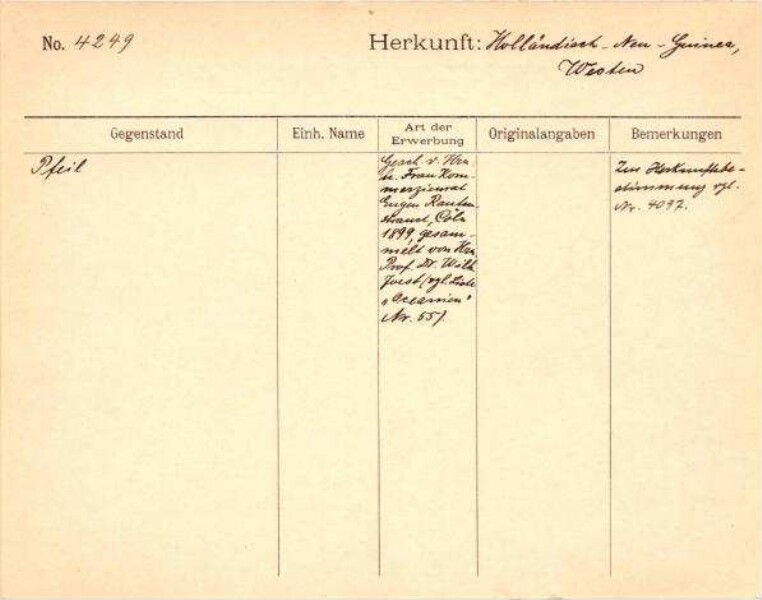 No. 4249
Herkunft: Holländisch-Neu-Guinea,
Westen
Gegenstand
Einh. Name
Art der
Erwerbung
Originalangaben
Bemerkungen
Pfeil
Gesch. v. Hrn
u. Frau Kom-
merzienrat
Eugen Rauten-
strauch, Cöln
1899, gesam-
melt von Hrn
Prof. Dr. Wilh
Joest (vgl. Liste
"Oceanien"
Nr. 55).
Zur Herkunftsbe-
stimmung vgl.
Nr. 4097.